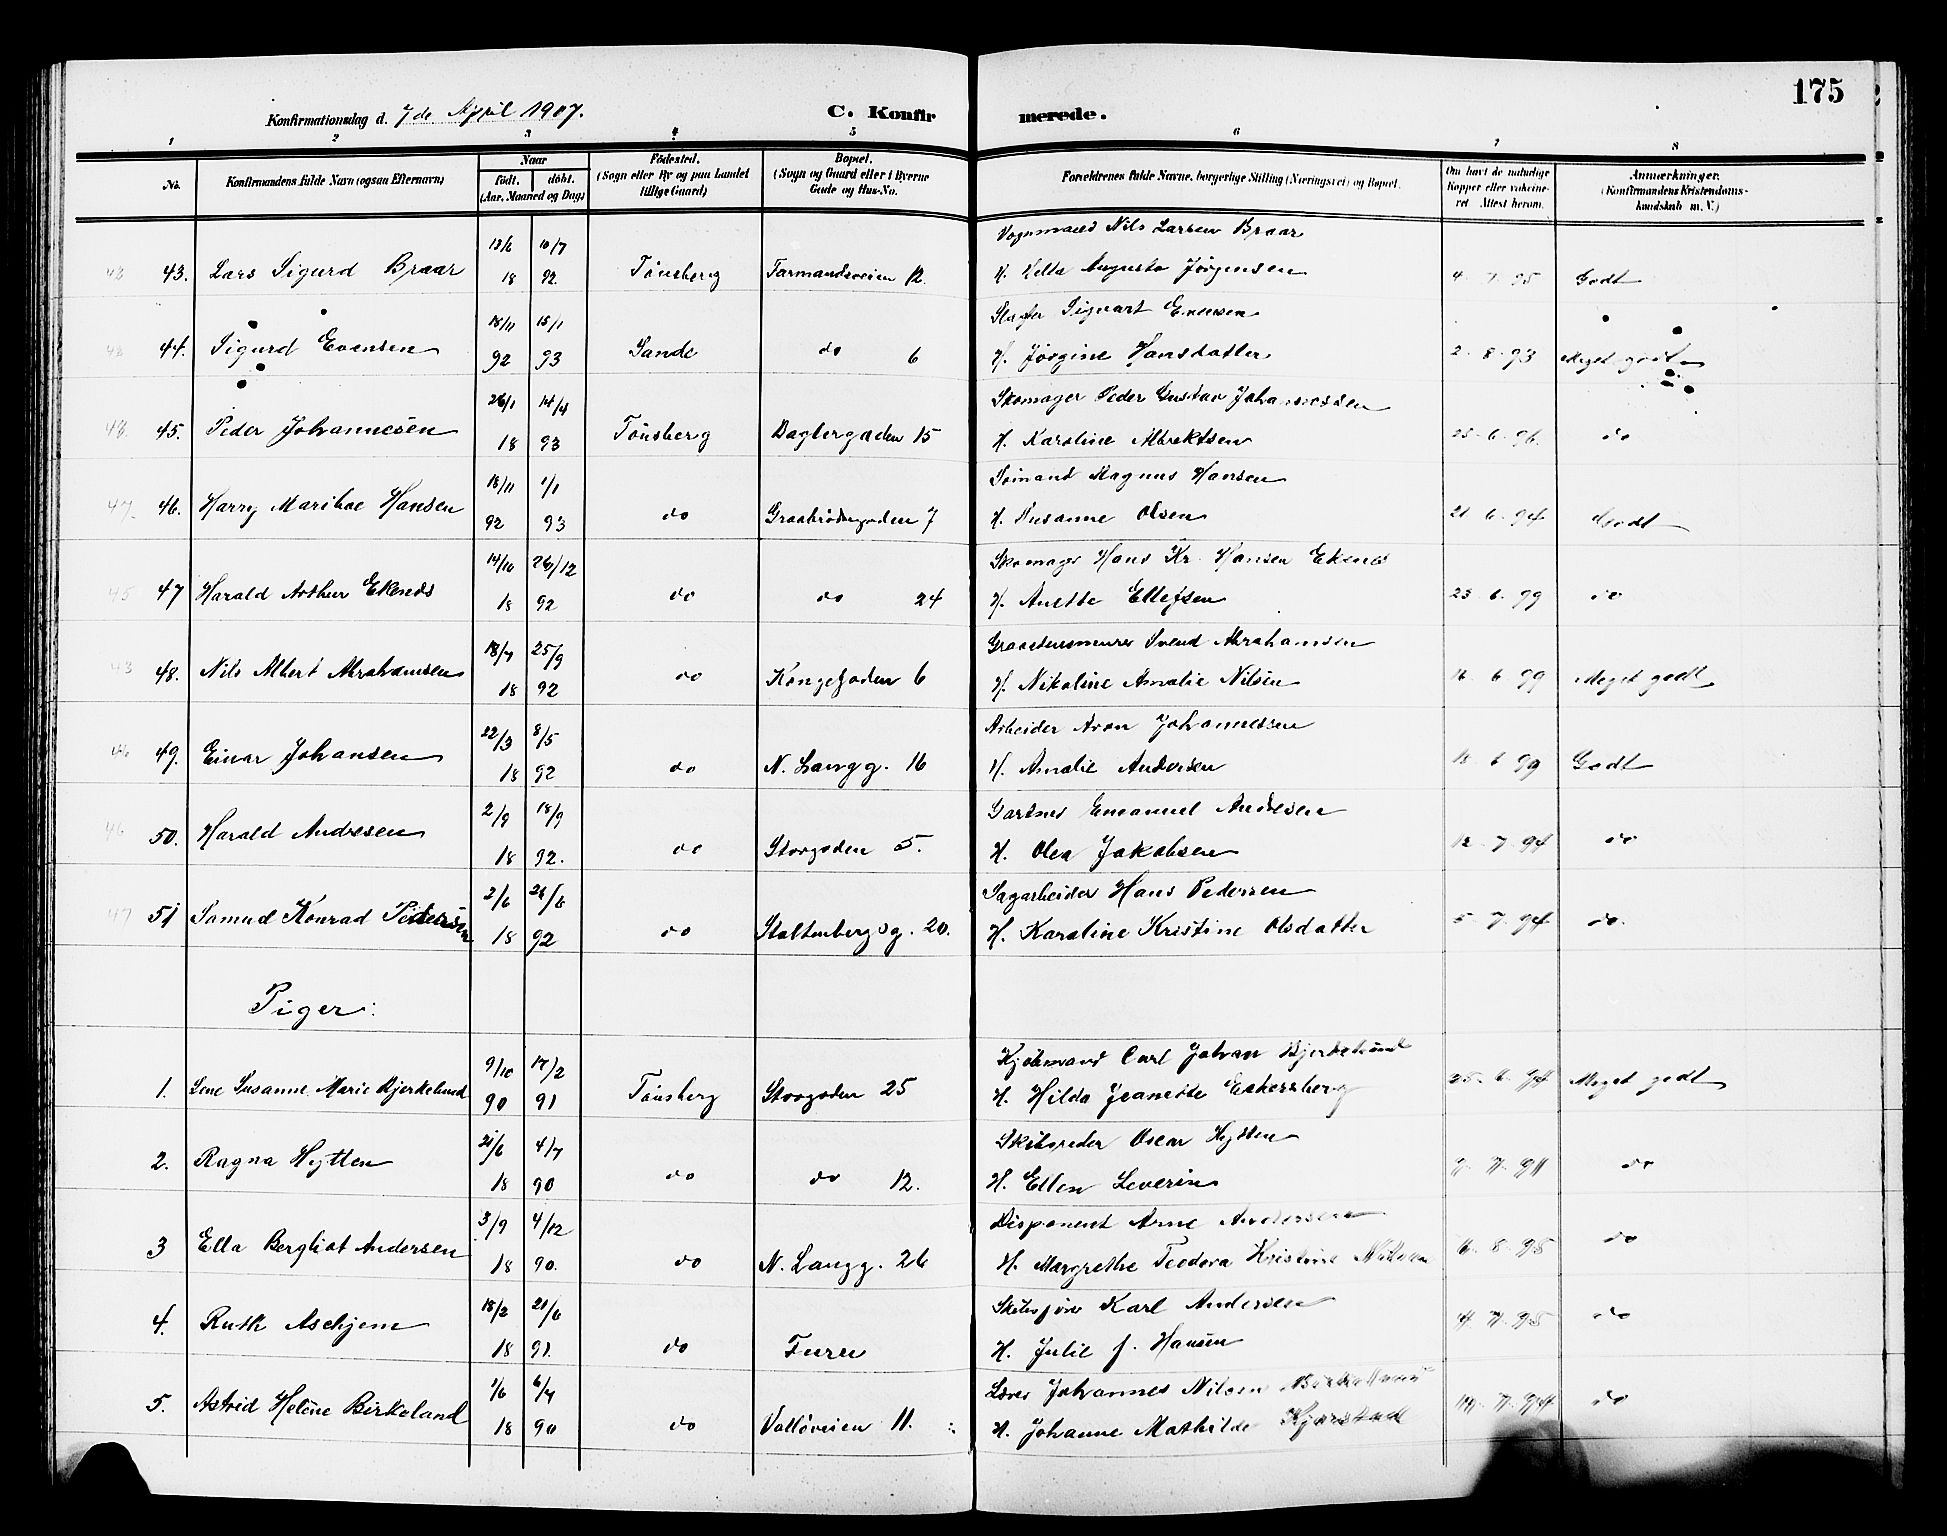 175
Konfirmationsdag d. 7de April 1907. C. Konfirmerede.
1 2 3 4 5 6 7 8
No. Konfirmandens fulde Navn (ogsaa Efternavn) Naar født. døbt. (Aar, Maaned og Dag) Fødested. (Sogn eller By og paa Landet tillige Gaard) Bopæl. (Sogn og Gaard eller i Byerne Gade og Hus-No. Forældrenes fulde Navne, borgerlige Stilling (Næringsvei) og Bopæl. Om havt de naturlige Kopper eller vakcineret. Attest herom. Anmærkninger. (Konfirmandens Kristendomskundskab m. V.)
12/6 10/7 Vognmand Nils Larsen Braar
43. Lars Sigurd Braar 18 92. Tønsberg Farmandsveien 12. H. Augusta Jørgensen 4 7 95 Godt
18/11 15/1 Sigvart Evensen
44. Sigurd Evensen 92 93 Sande do 6 H. Jørgine Hansdatter 2 8 93 Meget godt
26/1 14/4 Skomager Peder Gustav Johannessen
45. Peder Johannesen 18 93 Tønsberg 15 H. Karoline Albrektsen 25 6 96. do
18/11 1/1 Sømand Magnus Hansen
46. Harry Mariboe Hansen 92 93 do Graabrødregaden 7 H. Susanne Olsen 21 6 94 Godt
14/10 26/12 Skomager Hans Kr. Hansen Ekenes
47 Harald Arthur Ekenes 18 92 do do 24 H. Anette Ellefsen 23 6 99 do
18/7 25/9 Svend Abrahamsen
48. Nils Albert Abrahamsen 18 92 do Kongegaden 6 H. Nikoline Amalie Nilsen 16 6 99 Meget godt
22/3 8/5 Arbeider Aron Johannessen
49. Einar Johansen 18 92 do N. Langg. 16 H. Amalie Andersen 6 99 Godt
2/9 18/9 Gartner Emanuel Andresen
50. Harald Andresen 18 92. do Storgaden 5. H. Olea Jakobsen 12 7 94 do
2/6 Sagarbeider Hans Pedersen
51 Samuel Konrad Pedersen 18 92 do Stoltenbergsg. 20. H. Karoline Kristine Olsdatter 5 7 94 do.
Piger:
9/10 17/2 Kjøbmand Carl Johan Bjerkelund
1. Lene Susanne Marie Bjerkelund 90 91 Tønsberg Storgaden 25 H. Hilda Jeanette Eckersberg 25 6 94 Meget godt
21/6 4/7 Skibsreder Oscar Hytten
2. Ragna Hytten 18 90 do do 12. H. Ellen Severin do
3/9 4/12 Disponent Arne Andersen
3 Ella Bergliot Andersen 18 90. do N. Langg. 26 H. Margrethe Teodora Kristine 6 8 95 do
18/2 21/6 Karl Andersen
4. Ruth Aschjem 18 91. do Furu H. Julie J. Hansen 4 7 95 do
1/6 6/7 Lærer Johannes Nilsen Birkeland
5. Astrid Helene Birkeland 18 90 do Valløveien 11. H. Johanne Mathilde Kjørstad 7 94 do